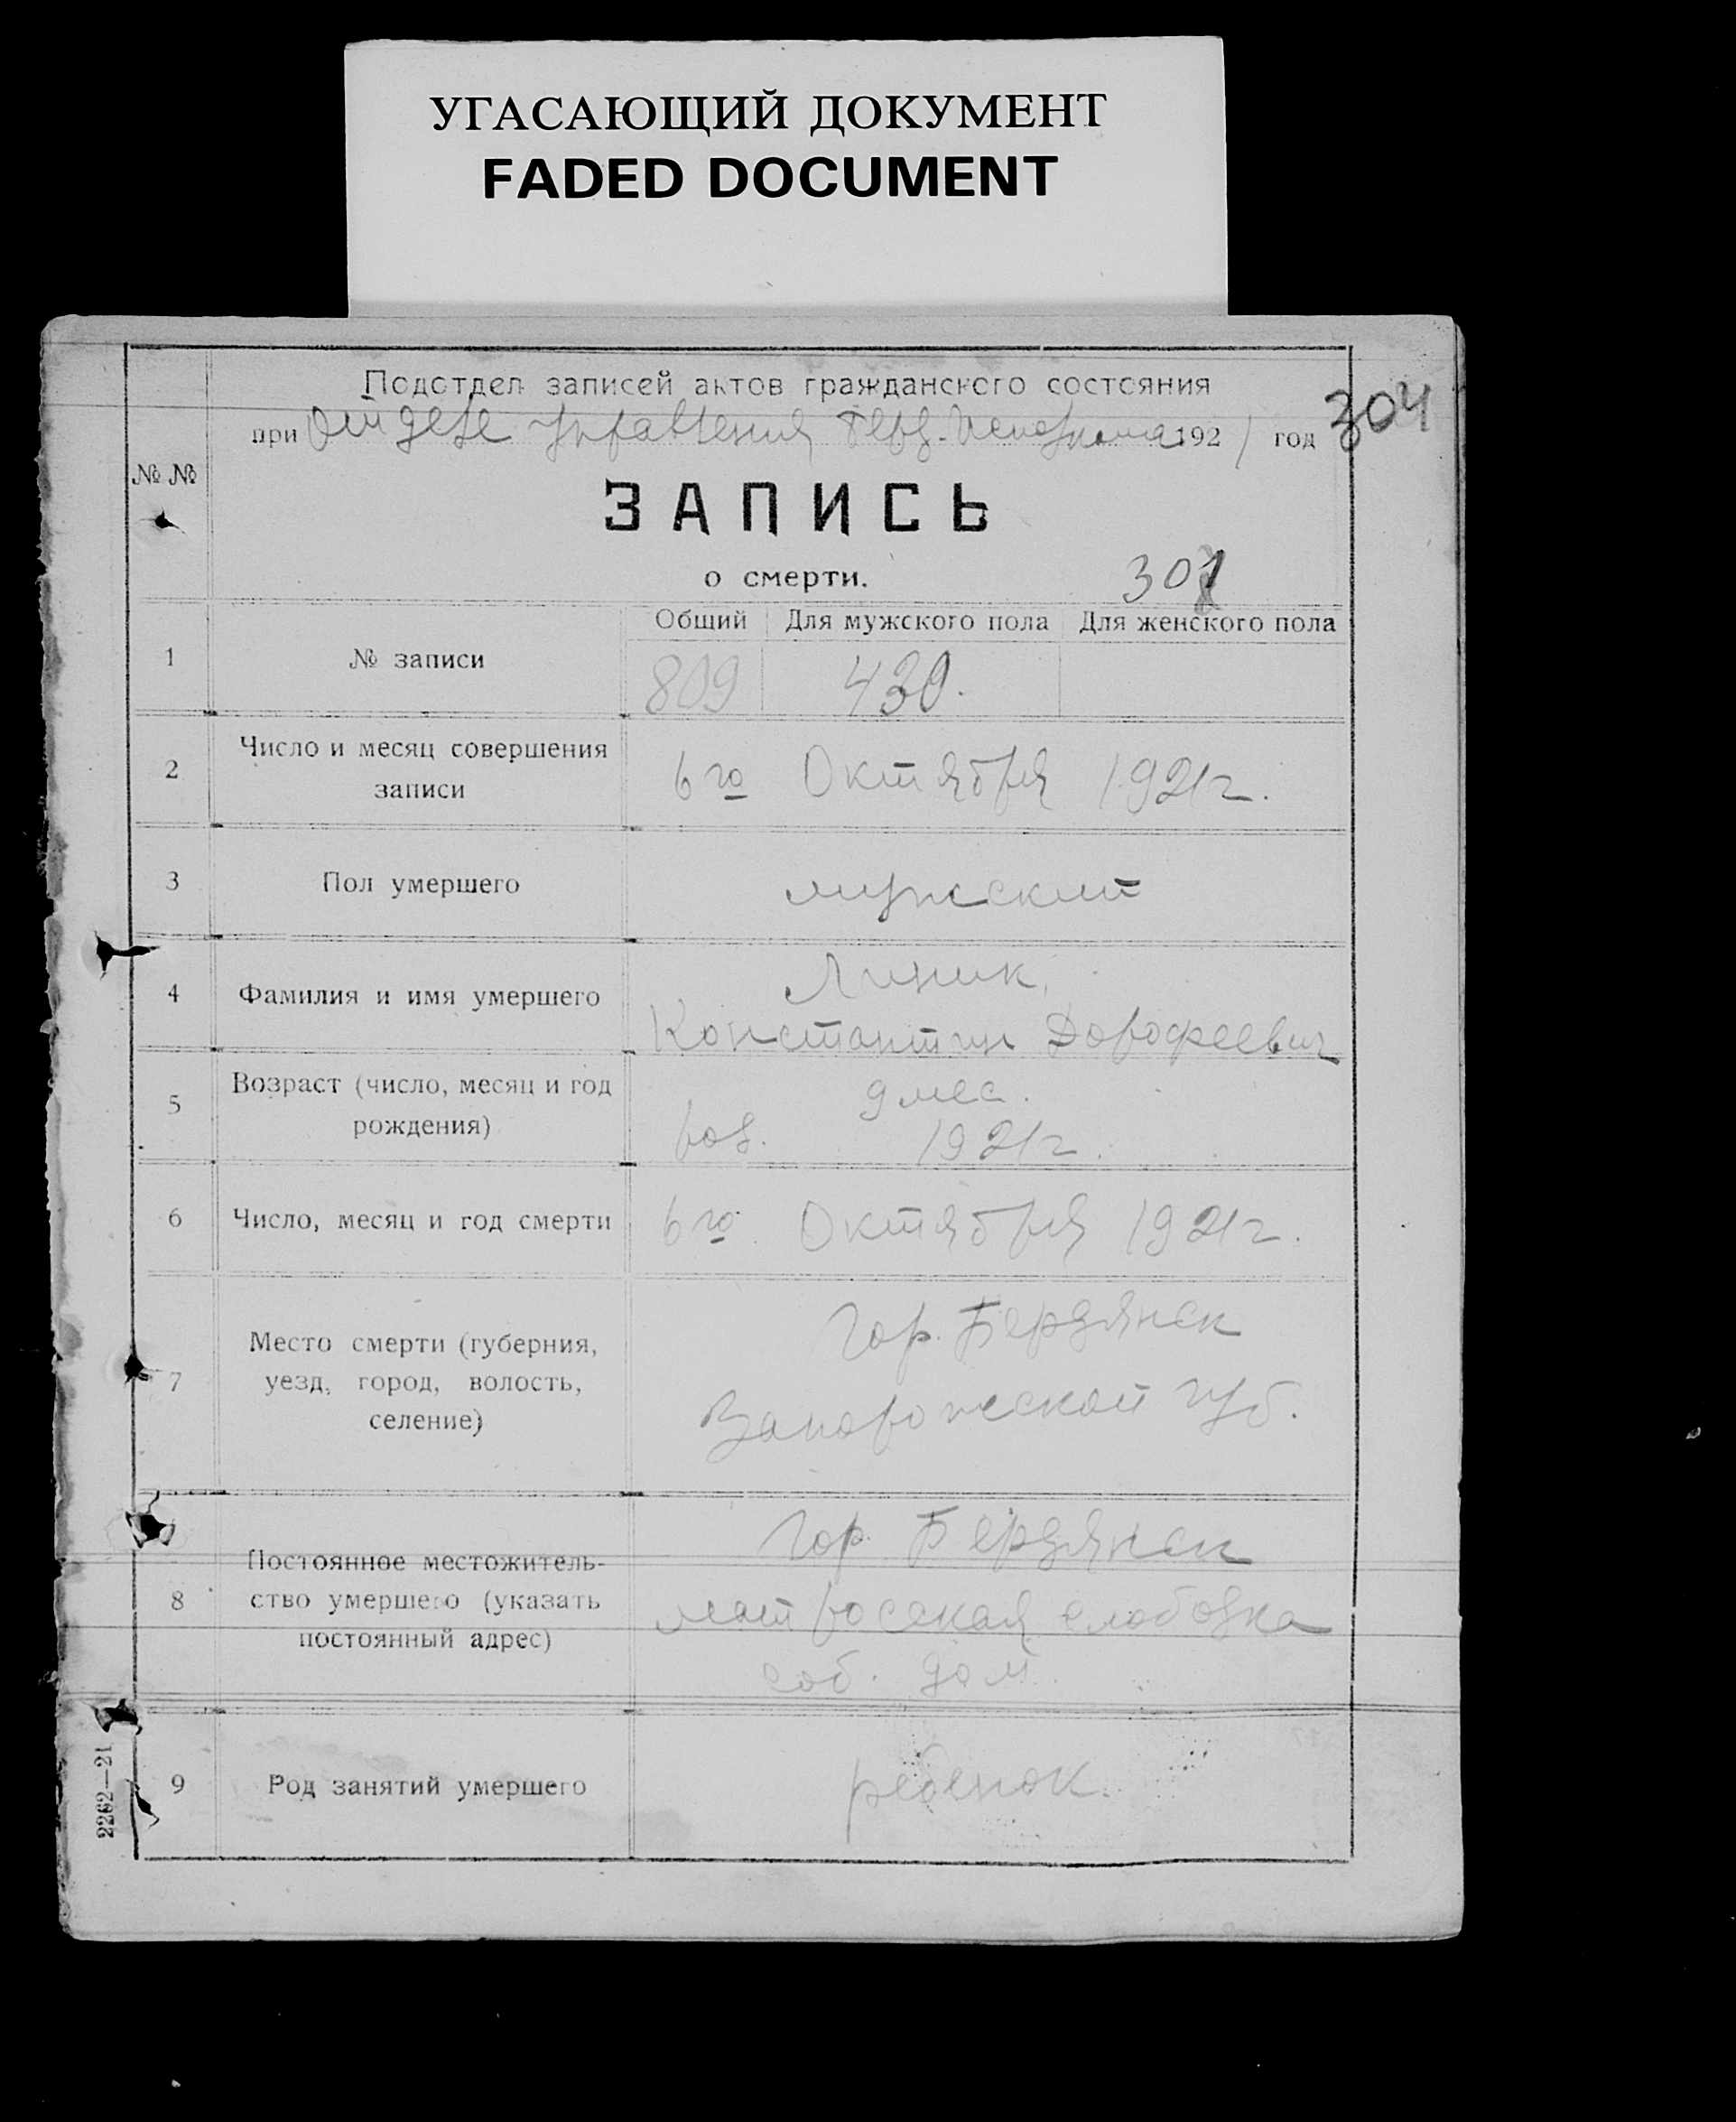 УГАСАЮЩИЙ ДОКУМЕНТ
FADED DOCUMENT
Подотдел записей актов гражданского состояния
304
при Отделе Управления Берд. Исполкома 1921 год
№ №
ЗАПИСЬ
о смерти.
301
Общий Для мужского пола Для женского пола
1 № записи 809 430.
2 Число и месяц совершения
записи
6го Октября 1921г.
3 Пол умершего мужский
4 Фамилия и имя умершего
Линик
Константин Дорофеевич
5 Возраст (число, месяц и год
рождения)
9 мес.
род. 1921г.
6 Число, месяц и год смерти 6го Октября 1921г.
7 Место смерти (губерния,
уезд, город, волость,
селение)
Гор. Бердянск
Запорожской губ.
8 Постоянное местожитель-
ство умершего (указать
постоянный адрес)
Гор. Бердянск
матросская слободка
соб. дом
9 Род занятий умершего ребенок.
2262—21